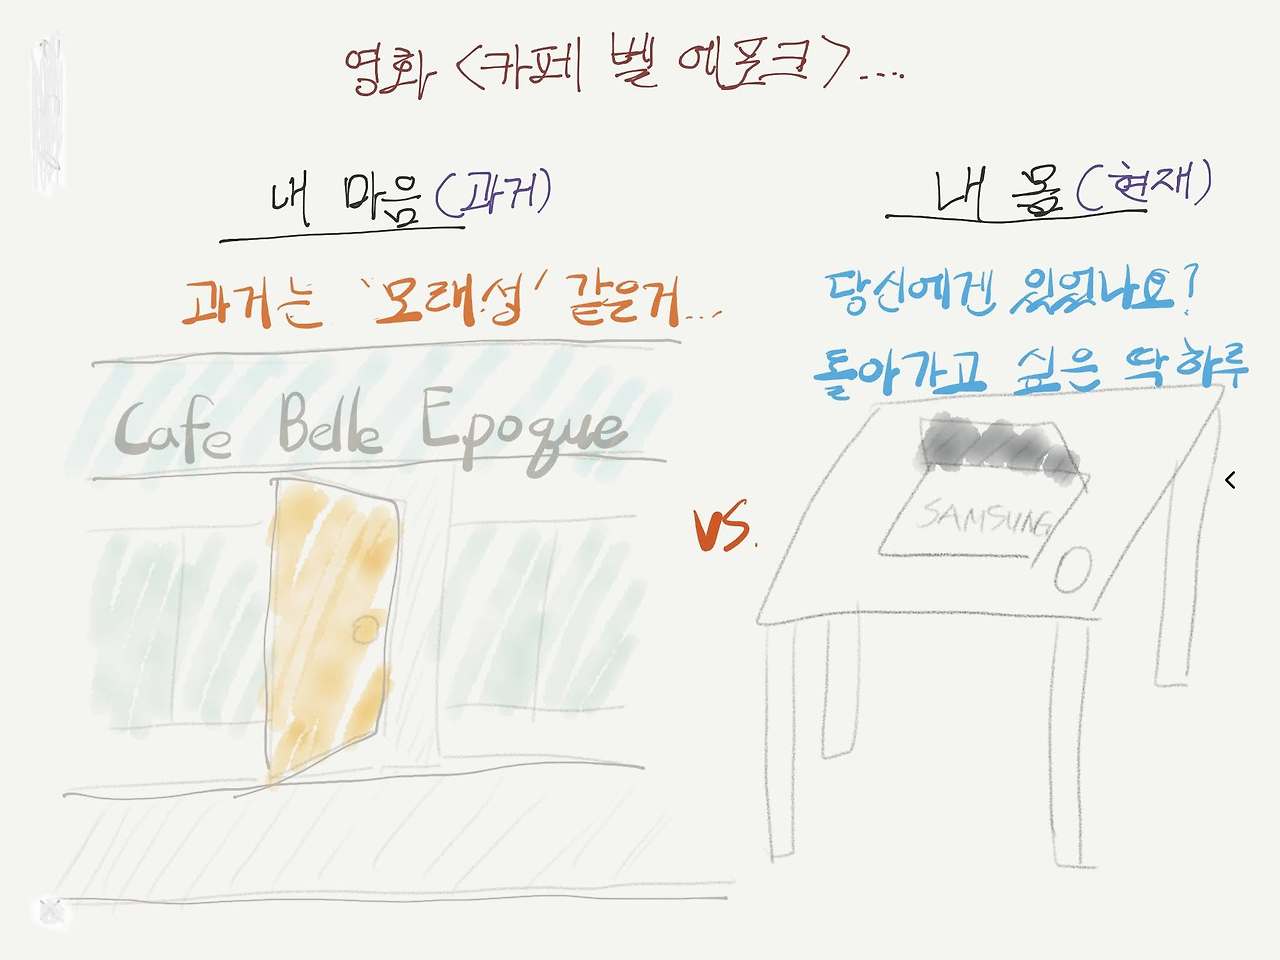 영화 <카페 벨 에포크>...
내 마음 (과거)
과거는 '모래성' 같은거...
Cafe Belle Epoque
vs.
내 몸 (현재)
당신에겐 있었나요?
돌아가고 싶은 딱 하루
SAMSUNG